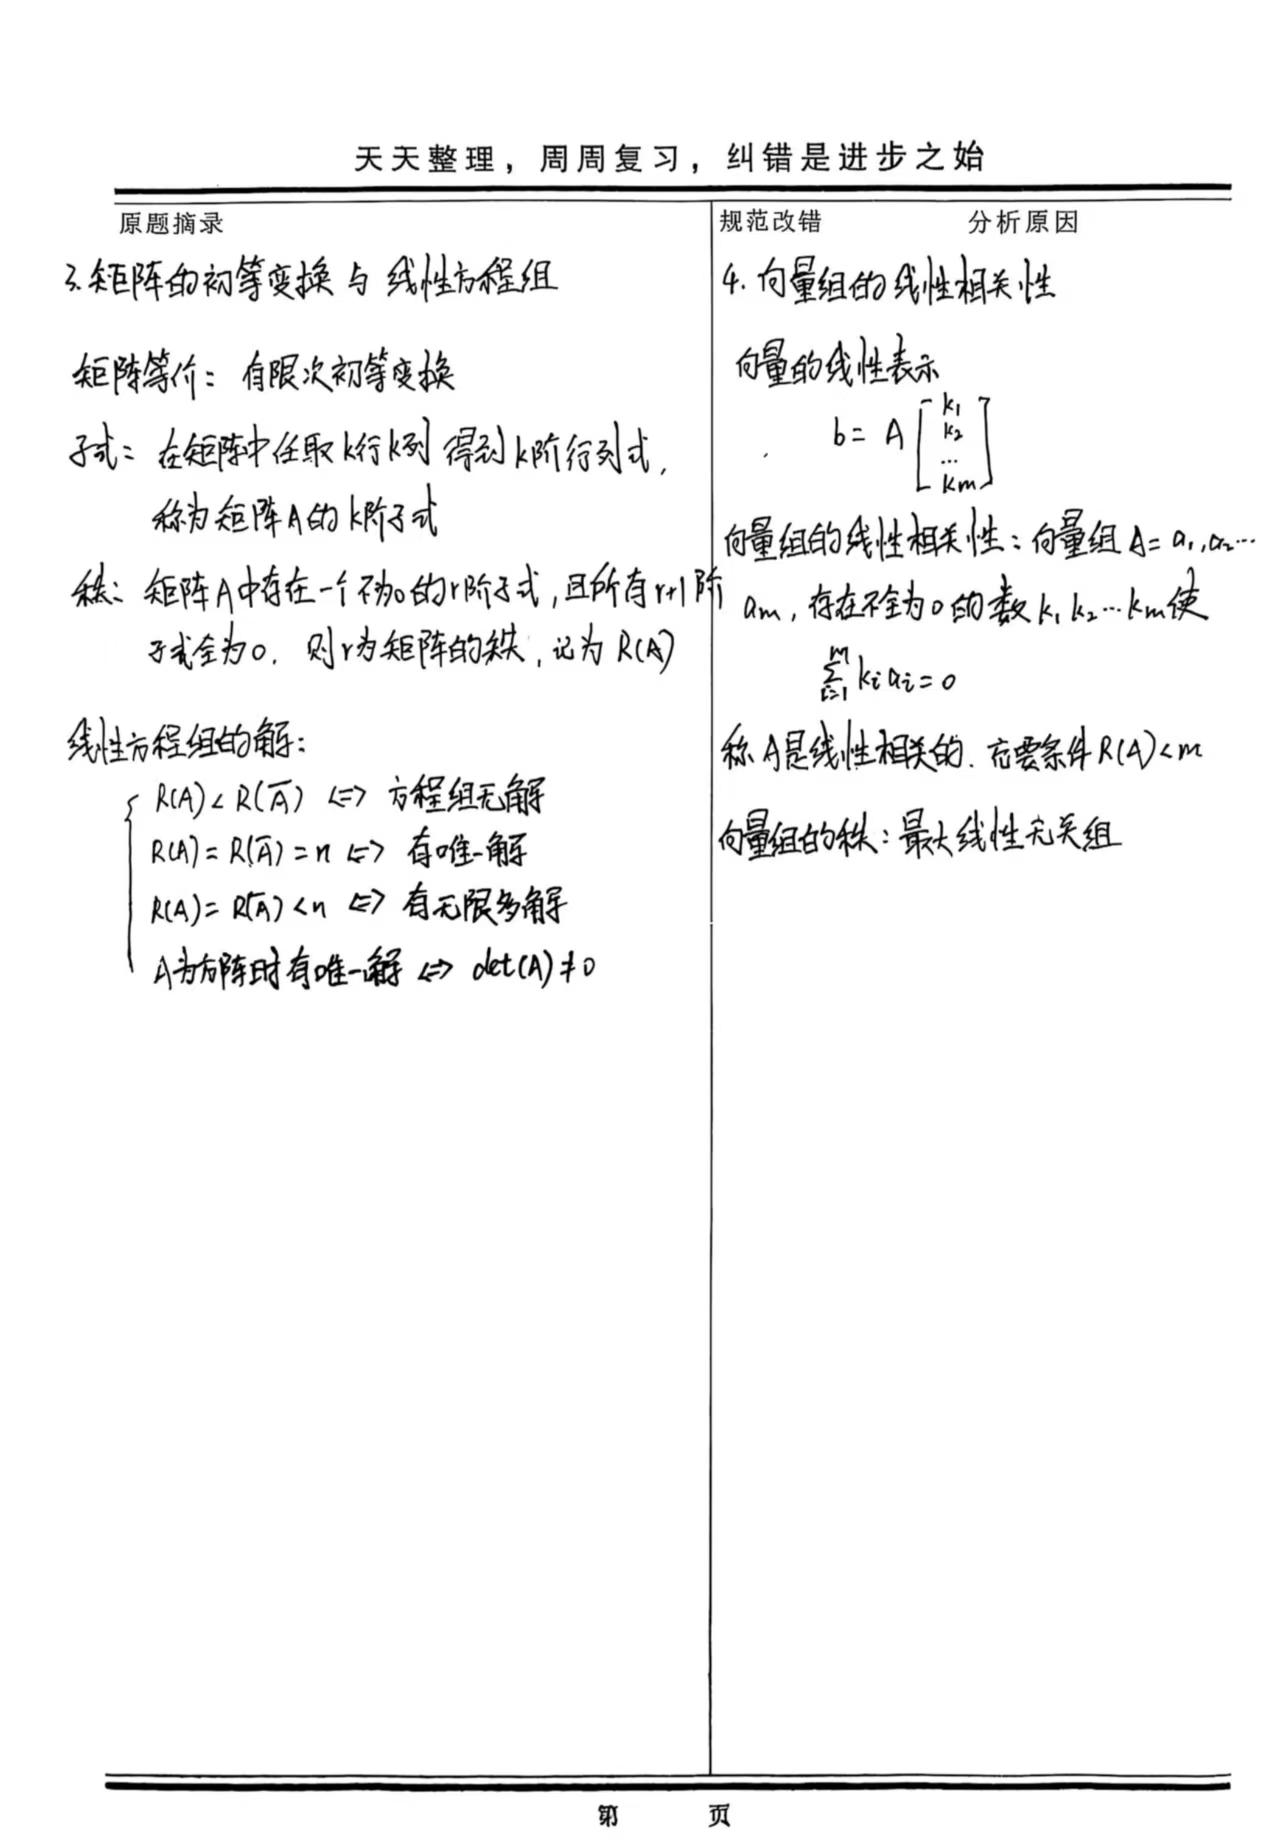 天天整理，周周复习，纠错是进步之始
原题摘录
3.矩阵的初等变换与线性方程组
矩阵等价：有限次初等变换
子式：在矩阵中任取k行k列得到k阶行列式，
称为矩阵A的k阶子式
秩：矩阵A中存在一个不为0的r阶子式，且所有r+1阶
子式全为0．则r为矩阵的秩，记为R(A)
线性方程组的解：
R(A)<R(A̅) <=> 方程组无解
R(A)=R(A̅)=n <=> 有唯一解
R(A)=R(A̅)<n <=> 有无限多解
A为方阵时有唯一解 <=> det(A)≠0
规范改错 分析原因
4.向量组的线性相关性
向量的线性表示
b=A[k₁
k₂
…
km]
向量组的线性相关性：向量组A=a₁,a₂…
am，存在不全为0的数k₁k₂…km使
∑_{i=1}^{m} kᵢaᵢ=0
称A是线性相关的．充要条件R(A)<m
向量组的秩：最大线性无关组
第 页